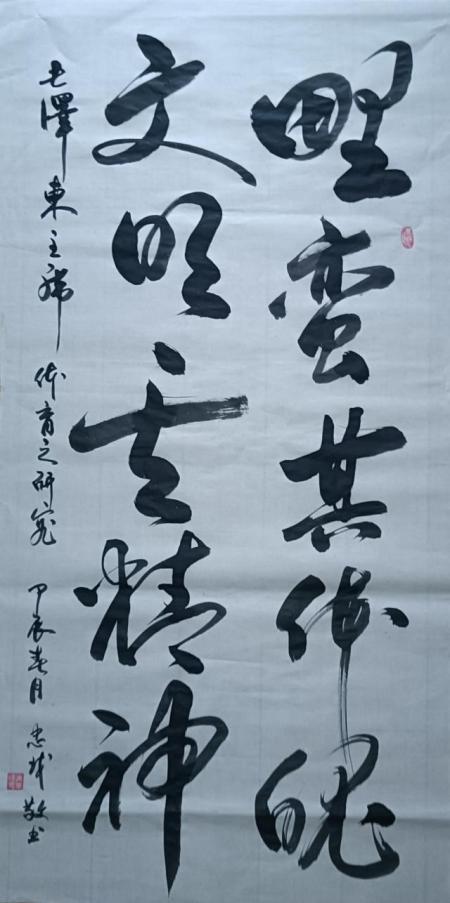 野蛮其体魄
文明其精神
毛澤東主席体育之研究 甲辰春月 忠 敬书